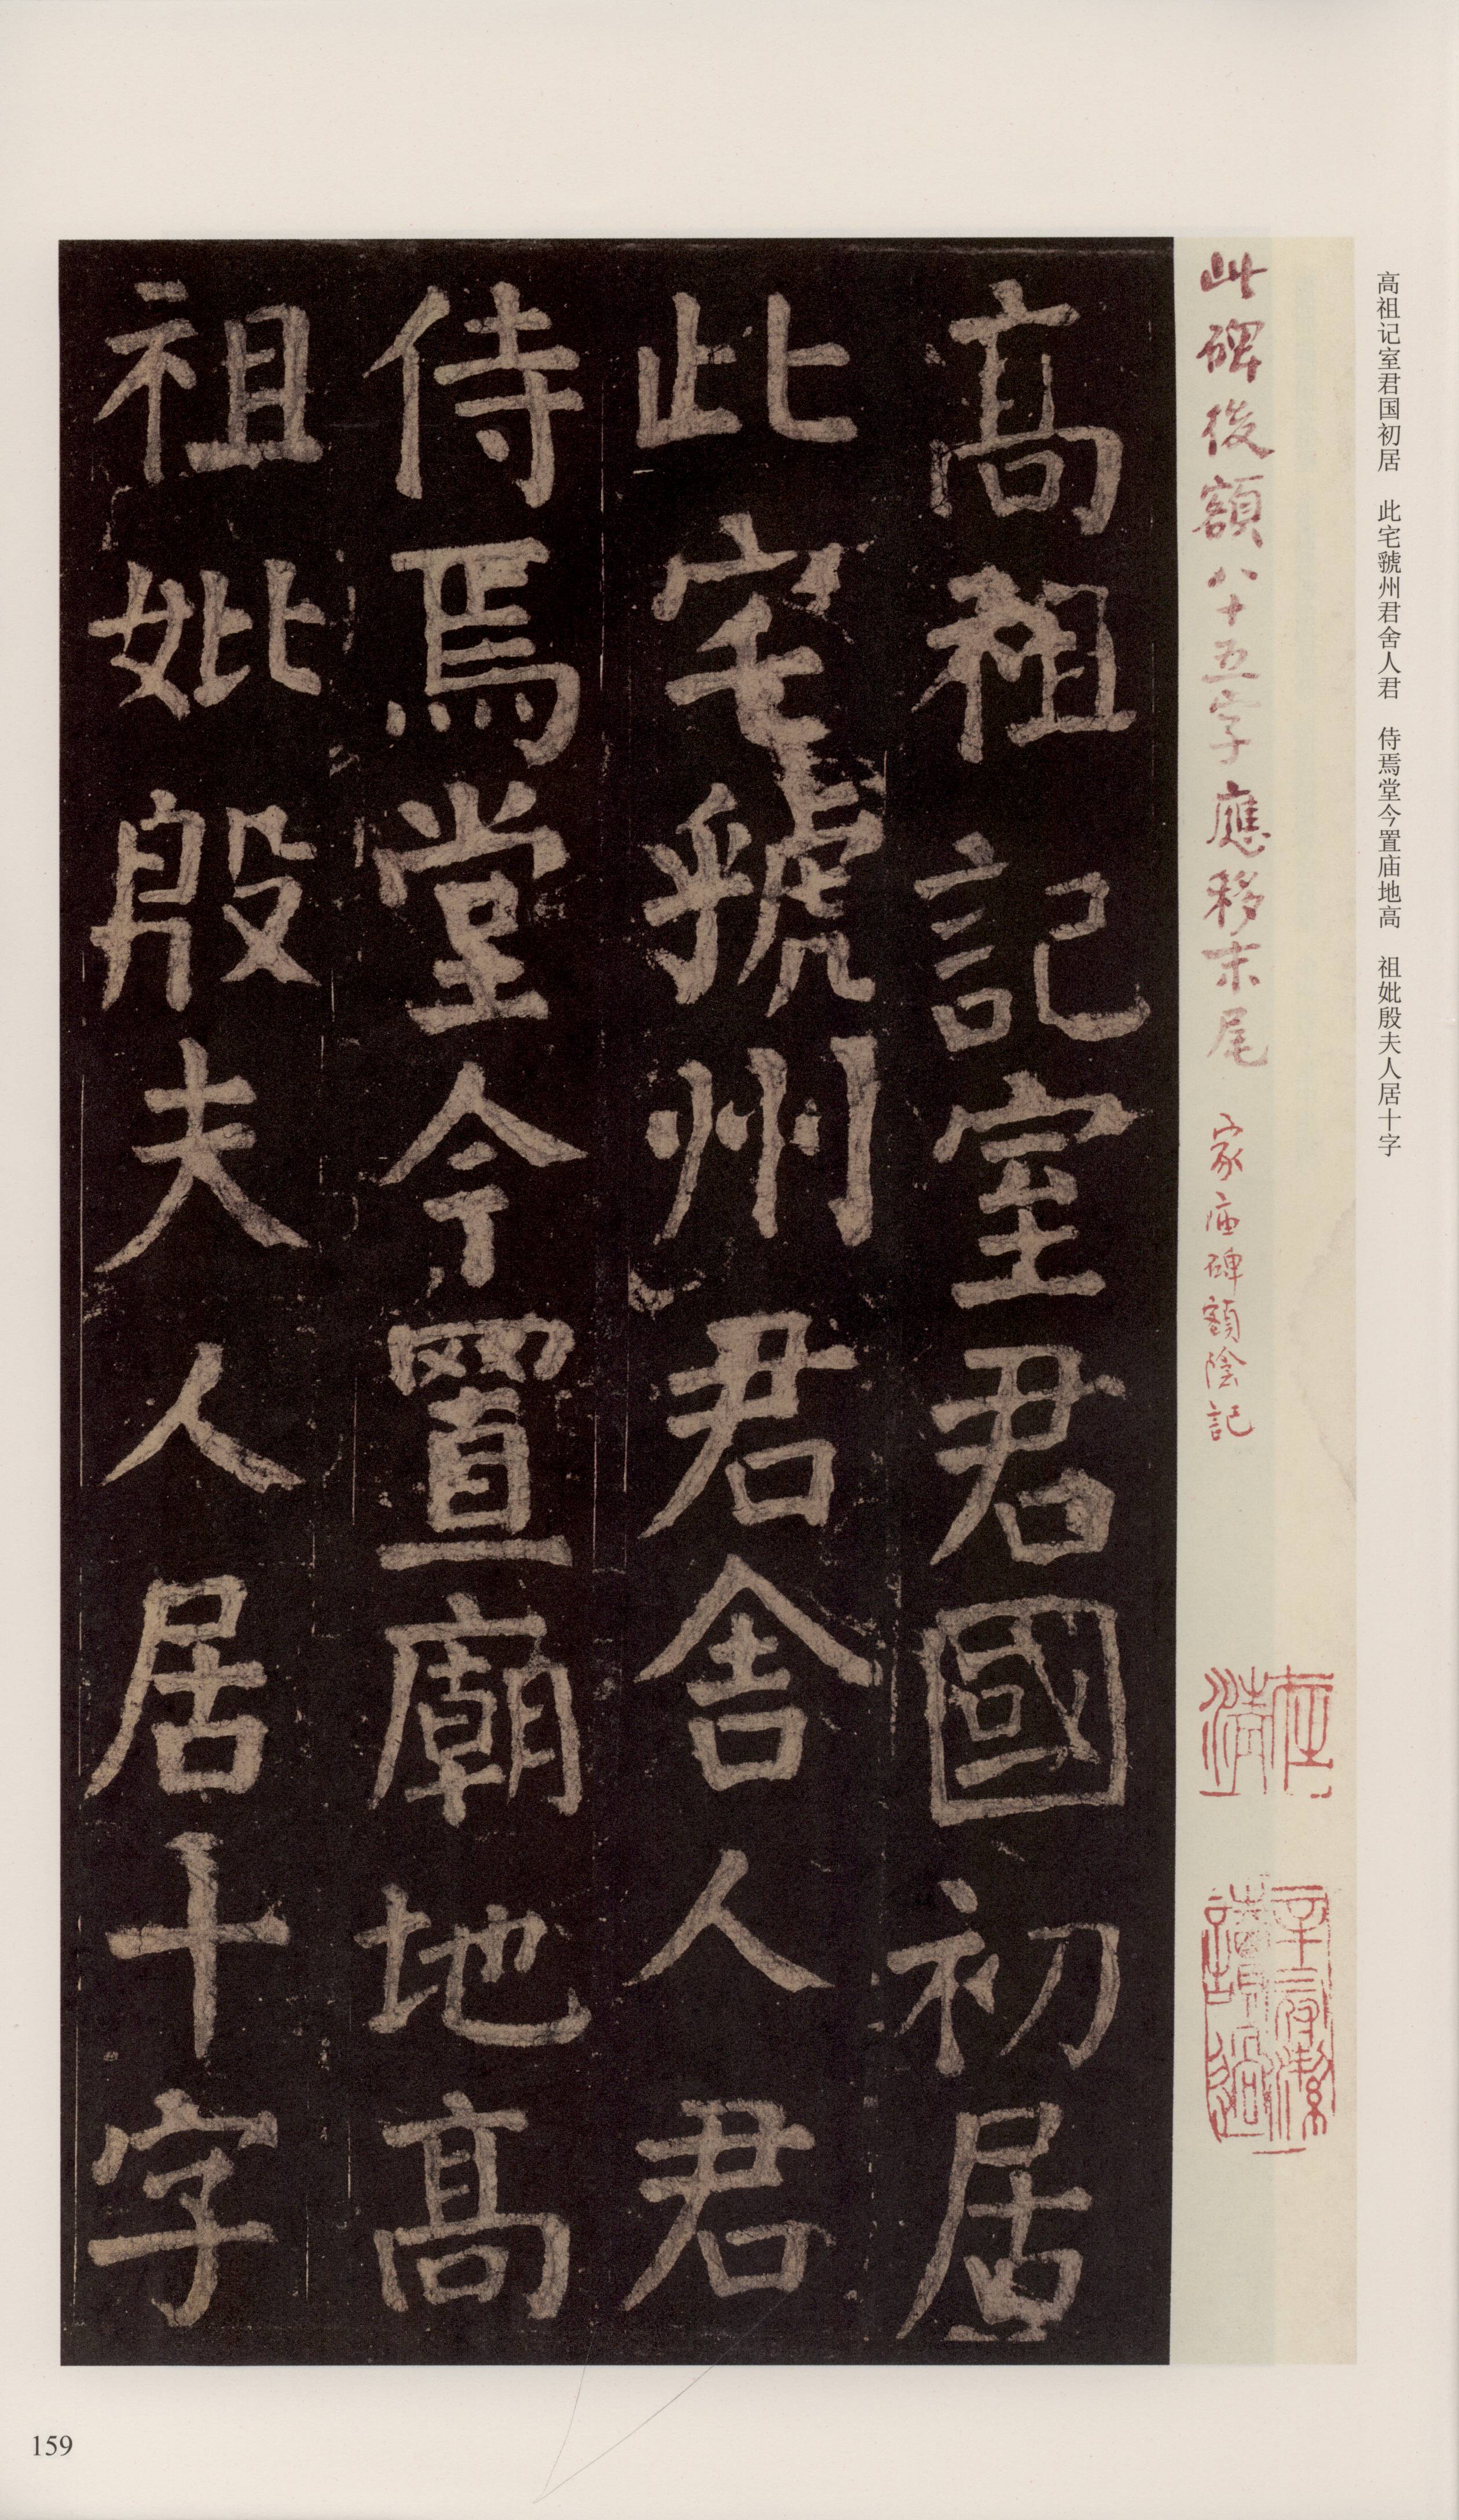 高祖记室君国初居　此宅虢州君舍人君　侍焉堂今置庙地高　祖妣殷夫人居十字
此碑後額八十五字應移末尾　家庙碑額陰記
高祖記室君國初居
此宅虢州君舍人君
侍焉堂今置廟地高
祖妣殷夫人居十字
159